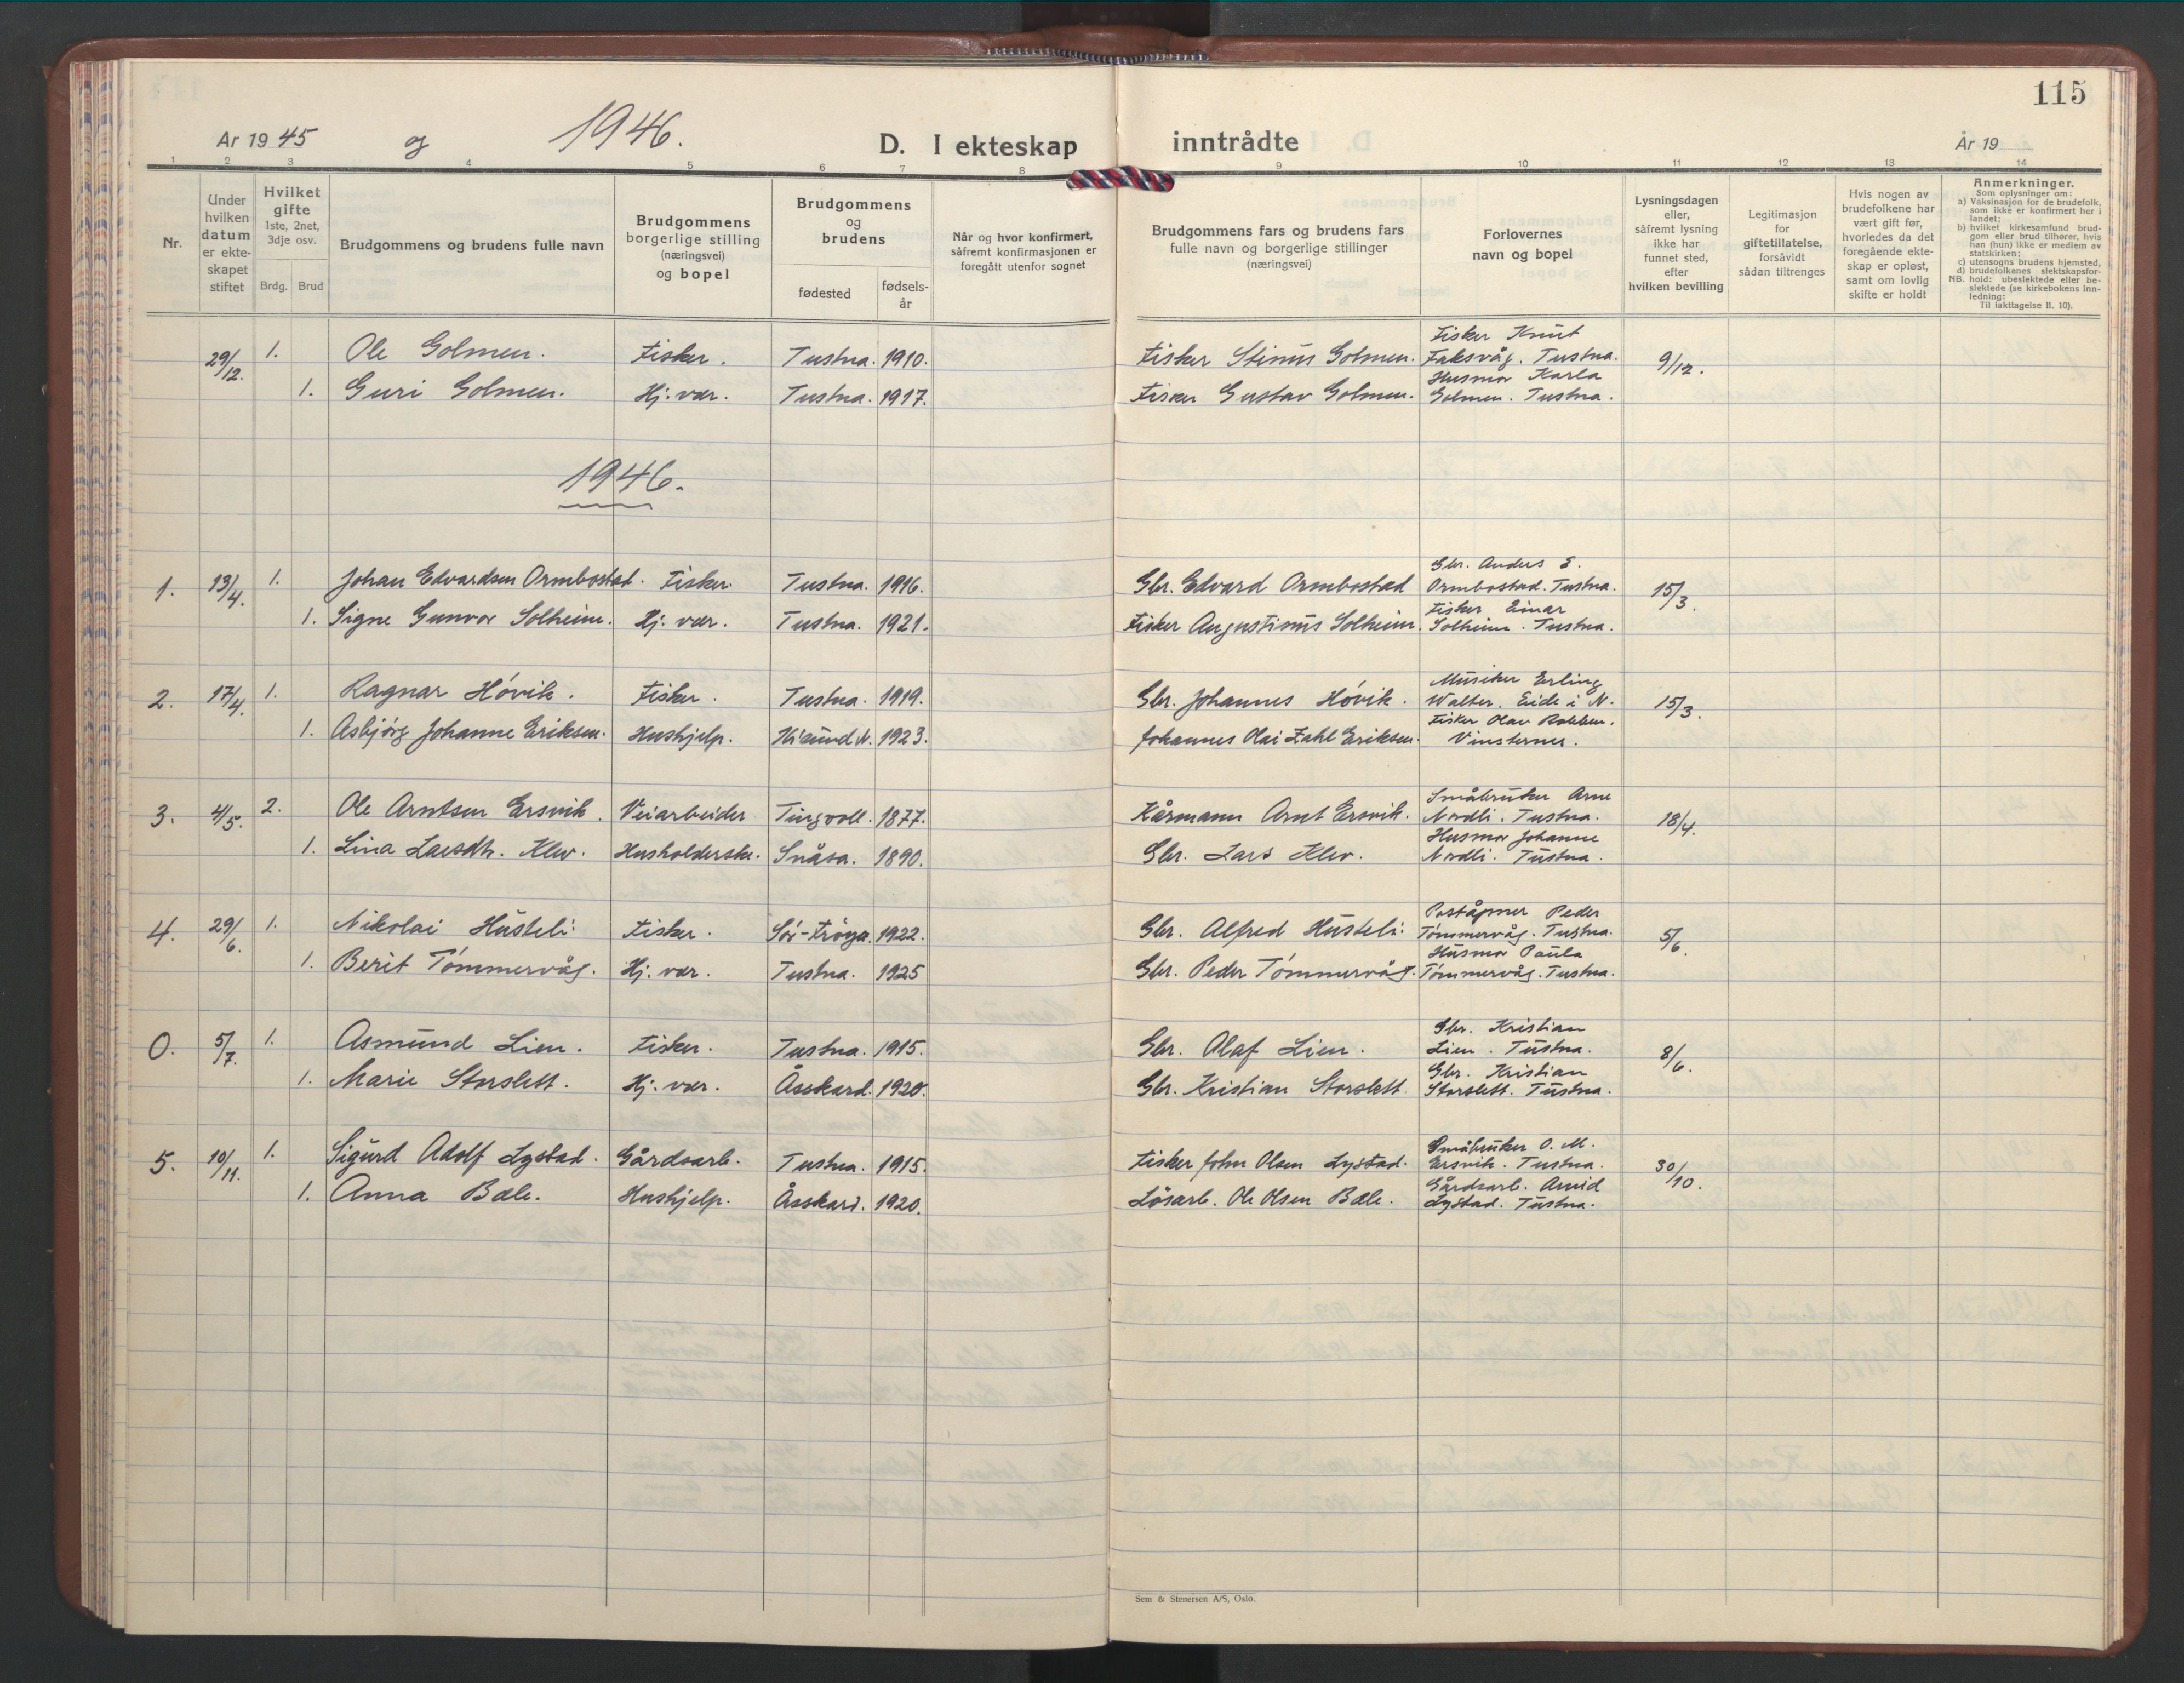 115
År 1945 og 1946. D. I ekteskap inntrådte År 19
1 2 3 4 5 6 7 8 9 10 11 12 13 14
Nr.
Under hvilken datum er ekte-skapet stiftet
Hvilket gifte 1ste, 2net, 3dje osv.
Brdg. Brud
Brudgommens og brudens fulle navn
Brudgommens borgerlige stilling (næringsvei) og bopel
Brudgommens og brudens
fødested
fødsels-år
Når og hvor konfirmert, såfremt konfirmasjonen er foregått utenfor sognet
Brudgommens fars og brudens fars fulle navn og borgerlige stillinger (næringsvei)
Forlovernes navn og bopel
Lysningsdagen eller, såfremt lysning ikke har funnet sted, efter hvilken bevilling
Legitimasjon for giftetillatelse, forsåvidt sådan tiltrenges
Hvis nogen av brudefolkene har vært gift før, hvorledes da det foregående ekte-skap er opløst, samt om lovlig skifte er holdt
Anmerkninger.
Som oplysninger om:
a) Vaksinasjon for de brudefolk, som ikke er konfirmert her i landet;
b) hvilket kirkesamfund brud-gom eller brud tilhører, hvis han (hun) ikke er medlem av statskirken;
c) utensogns brudens hjemsted,
d) brudefolkenes slektskapsfor-hold: ubeslektede eller be-slektede (se kirkebokens inn-ledning:
NB.
Til iakttagelse II. 10).
29/12. 1. Ole Golmen. Fisker. Tustna. 1910. Fisker Stinus Golmen. Fisker Knut Faksvåg. Tustna. 9/12.
1. Guri Golmen. Hj. vær. Tustna. 1917. Fisker Gustav Golmen. Husmor Karla Golmen. Tustna.
1946.
1. 13/4. 1. Johan Edvardsen Ormbostad. Fisker. Tustna. 1916. Gbr. Edvard Ormbostad Gbr. Anders E. Ormbostad. Tustna. 15/3.
1. Signe Gunvor Solheim. Hj. vær. Tustna. 1921. Fisker Augustinus Solheim. Fisker Einar Solheim. Tustna.
2. 17/4. 1. Ragnar Hovik. Fisker. Tustna. 1919. Gbr. Johannes Hovik. Musiker Erling Walter. Eide i N. 15/3.
1. Asbjørg Johanne Eriksen. Hushjelp. Kr.sund N. 1923. Johannes Olai Zahl Eriksen. Fisker Olav Vinsternes.
3. 4/5. 2. Ole Arntsen Ersvik. Veiarbeider Tingvoll. 1877. Kårmann Arnt Ersvik. Småbruker Arne Nordli. Tustna. 18/4.
1. Lina Larsdtr. Klev. Husholderske. Snåsa. 1890. Gbr. Lars Klev. Husmor Johanne Nordli. Tustna.
4. 29/6. 1. Nikolai Husteli Fisker. Sør-Frøya. 1922. Gbr. Alfred Husteli Poståpner Peder Tømmervåg. Tustna. 5/6.
1. Berit Tømmervåg. Hj. vær. Tustna. 1925 Gbr. Peder Tømmervåg. Husmor Paula Tømmervåg. Tustna.
0. 5/7. 1. Asmund Lien. Fisker. Tustna. 1915. Gbr. Olaf Lien. Gbr. Kristian Lien. Tustna. 8/6.
1. Marie Storslett. Hj. vær. Åsskard. 1920. Gbr. Kristian Storslett Gbr. Kristian Storslett. Tustna.
5. 10/11. 1. Sigurd Adolf Lystad. Gårdsarb. Tustna. 1915. Fisker John Olsen Lystad. Småbruker O. M. Ersvik. Tustna. 30/10.
1. Anna Bæle. Hushjelp. Åsskard. 1920. Løsarb. Ole Olsen Bæle. Gårdsarb. Arvid Lystad. Tustna.
Sem & Stenersen A/S, Oslo.